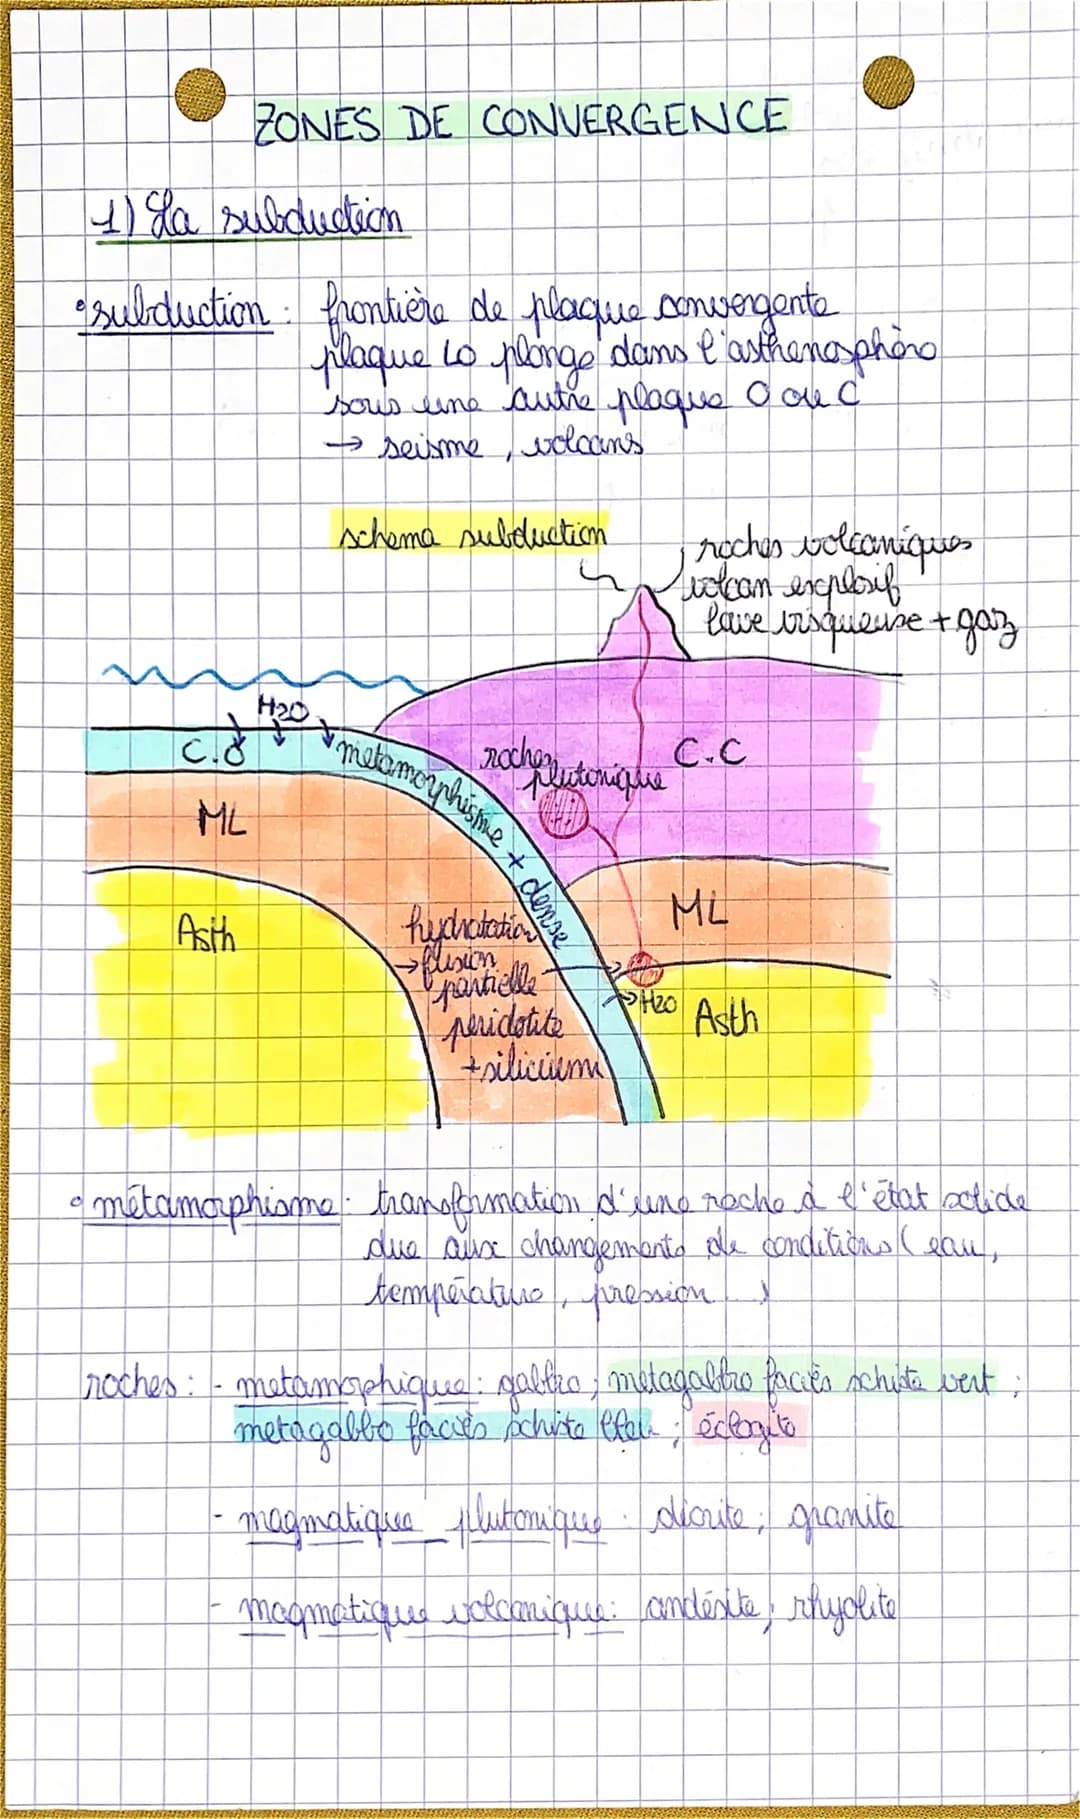 ZONES DE CONVERGENCE
1) La subduction
subduction : frontière de plaque convergente
plaque LO plonge dans l'asthenosphère
sous une autre plaque O ou C
→ seisme, volcans
schema subduction
roches volcaniques
volcan explosif
lave visqueuse + gaz
H2O
C.O
metamorphisme + dense
roches
plutonique
C.C
ML
ML
Asth
hydratation
→ fusion
partielle
peridotite
+ silicium
H2O
Asth
métamorphisme : transformation d'une roche à l'état solide
due aux changements de conditions (eau,
température, pression...)
roches : - metamorphique : gabbro ; metagabbro faciès schiste vert ;
metagabbo faciès schiste bleu ; éclogite
- magmatique plutonique : diorite ; granite
- magmatique volcanique : andésite ; rhyolite